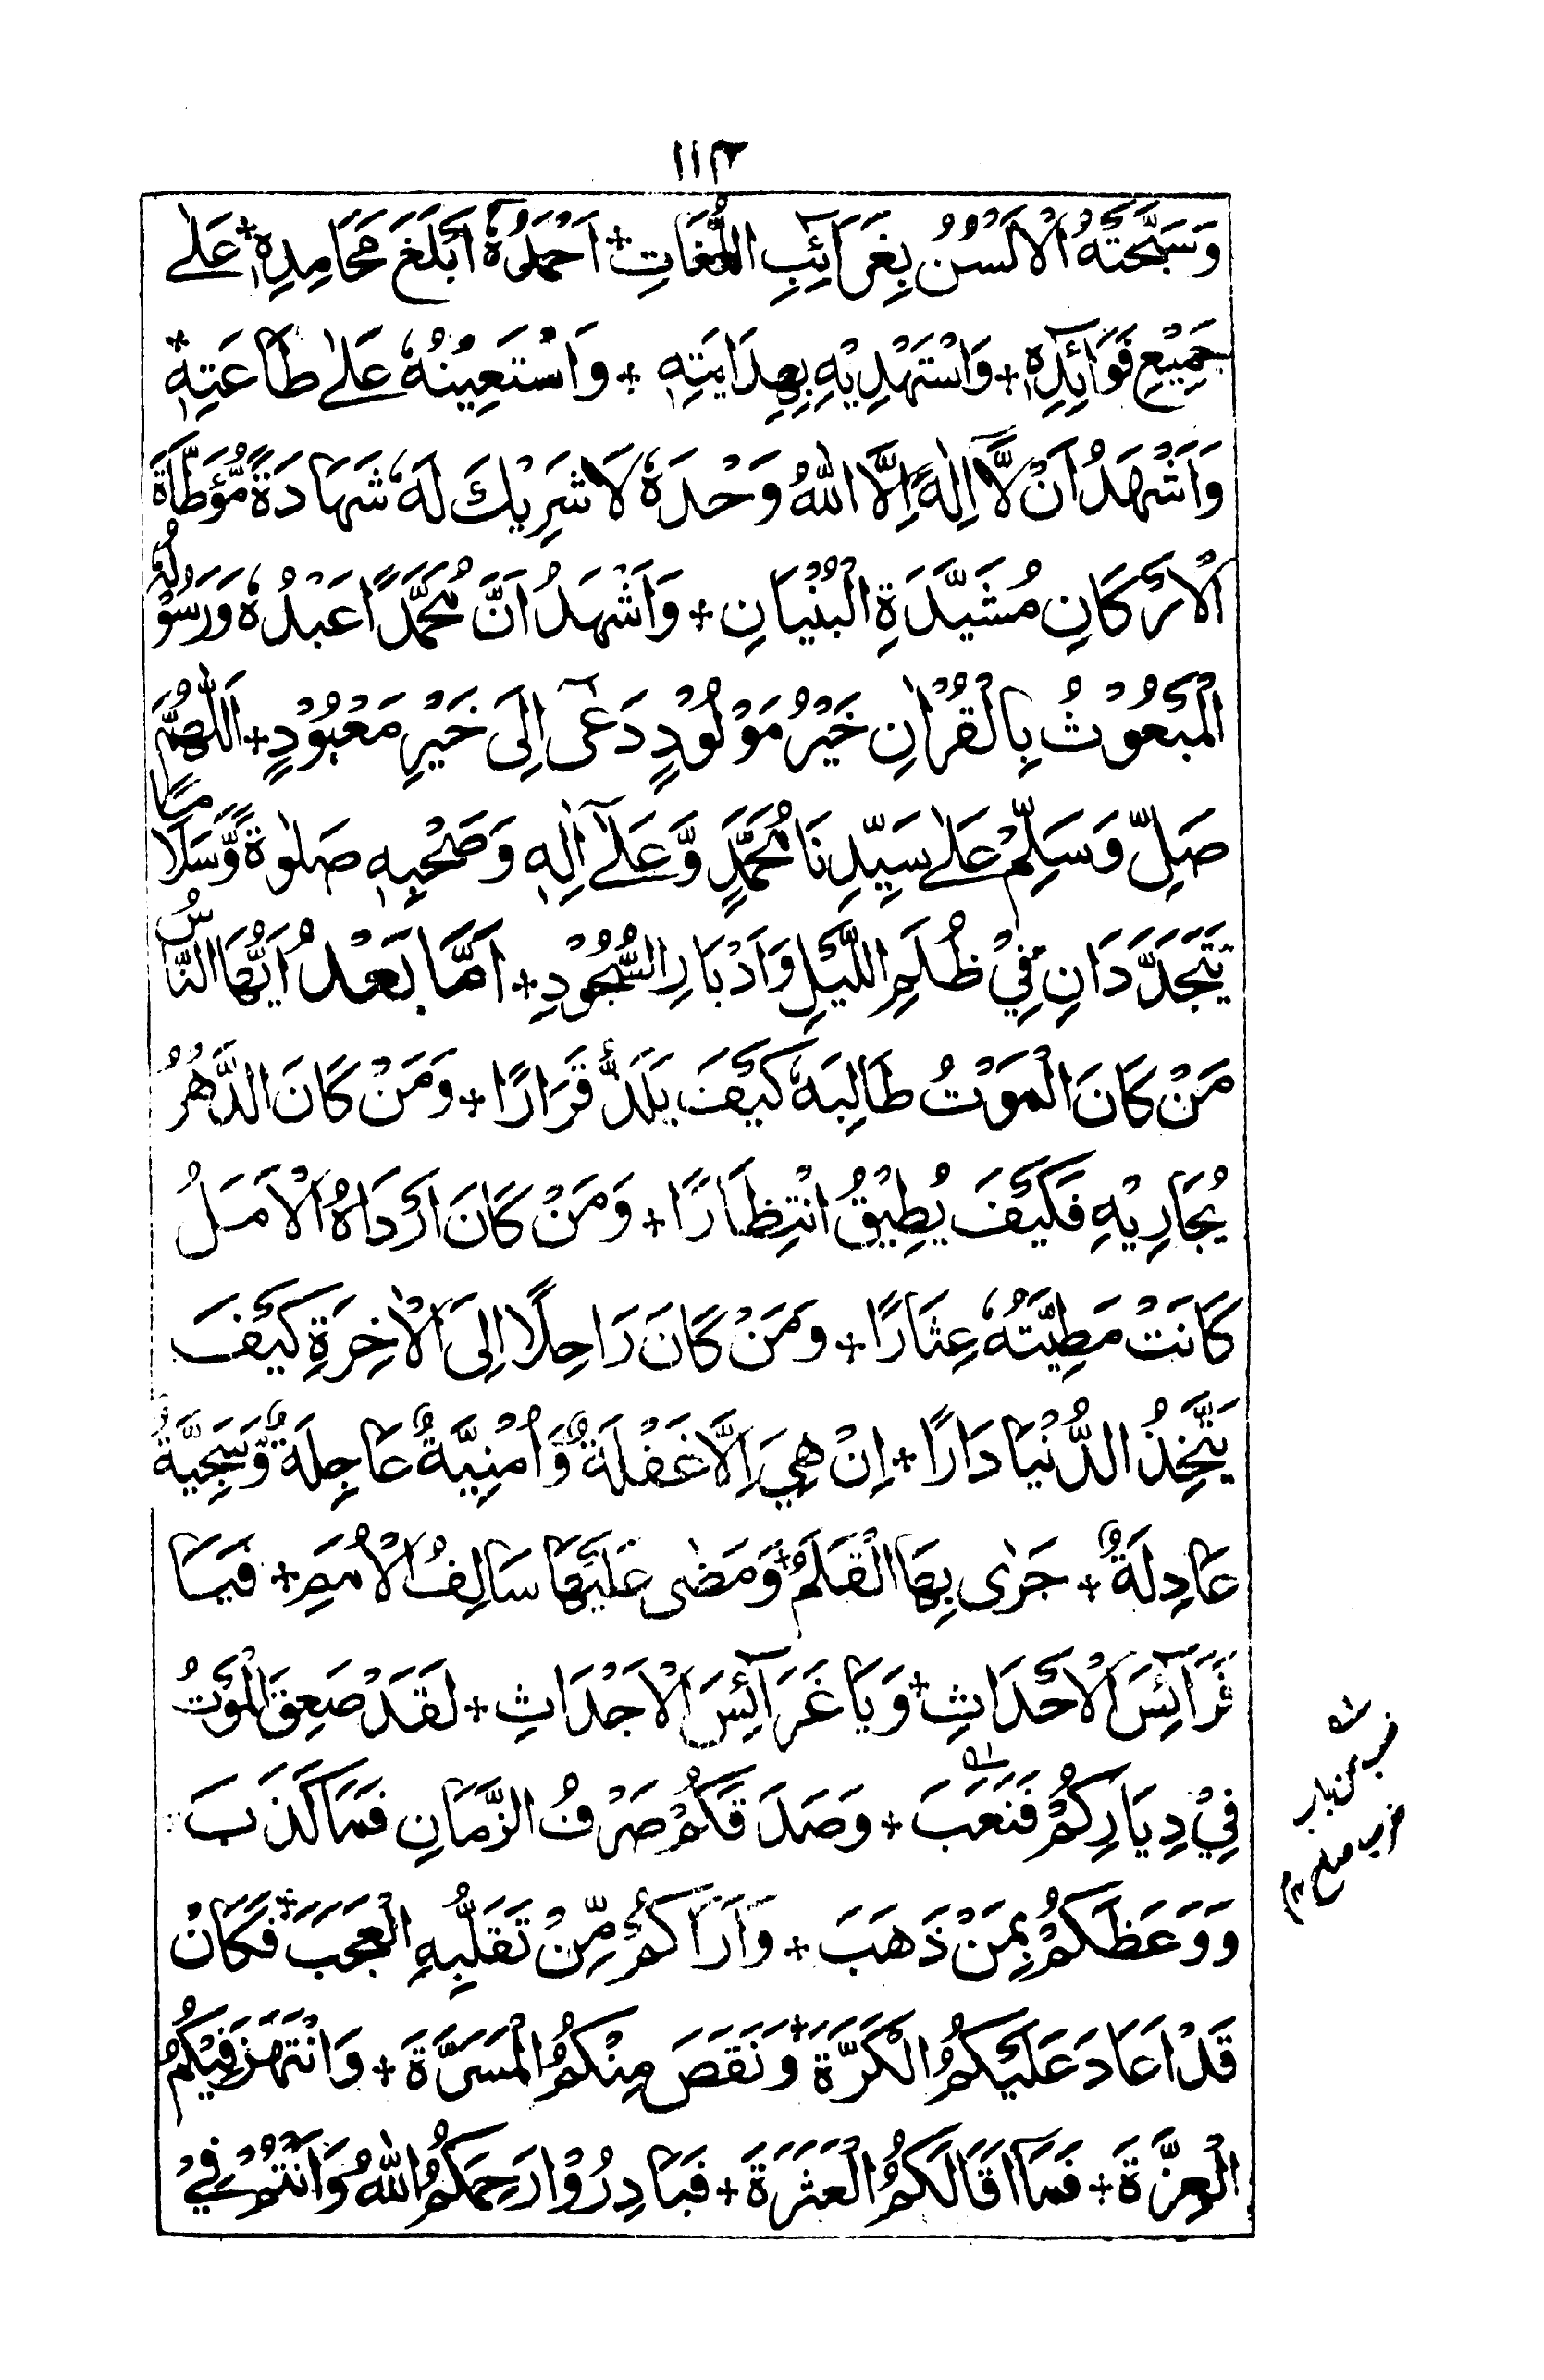 ۱۱۴
وَسَبَّحَتْهُ الْاَلْسُنُ بِغَرَآئِبِ اللُّغَاتِ + اَحْمَدُهٗ اَبْلَغَ مَحَامِدِهٖ + عَلٰے
جَمِيْعِ فَوَآئِدِهٖ + وَاَسْتَهْدِيْهِ بِهِدَايَتِهٖ + وَاَسْتَعِيْنُهٗ عَلٰے طَاعَتِهٖ +
وَاَشْهَدُ اَنْ لَّآ اِلٰهَ اِلَّا اللّٰهُ وَحْدَهٗ لَا شَرِيْكَ لَهٗ شَهَادَةً مُّؤَطَّاَةَ
الْاَرْكَانِ مُشَيَّدَةِ الْبُنْيَانِ + وَاَشْهَدُ اَنَّ مُحَمَّدًا عَبْدُهٗ وَرَسُوْلُهُ
الْمَبْعُوْثُ بِالْقُرْاٰنِ خَيْرُ مَوْلُوْدٍ دَعٰٓى اِلَى خَيْرِ مَعْبُوْدٍ + اَللّٰهُمَّ
صَلِّ وَسَلِّمْ عَلٰے سَيِّدِنَا مُحَمَّدٍ وَّعَلٰٓے اٰلِهٖ وَصَحْبِهٖ صَلٰوةً وَّسَلَامًا
يَتَجَدَّدَانِ فِيْ ظُلَمِ اللَّيْلِ وَاَدْبَارِ السُّجُوْدِ + اَمَّا بَعْدُ اَيُّهَا النَّاسُ
مَنْ كَانَ الْمَوْتُ طَالِبَهٗ كَيْفَ يَلَذُّ قَرَارًا + وَمَنْ كَانَ الدَّهْرُ
يُجَارِيْهِ فَكَيْفَ يُطِيْقُ انْتِظَارًا + وَمَنْ كَانَ اَرْدَاهُ الْاَمَلُ
كَانَتْ مَطِيَّتُهٗ عِثَارًا + وَمَنْ كَانَ رَاحِلًا اِلَى الْاٰخِرَةِ كَيْفَ
يَتَّخِذُ الدُّنْيَا دَارًا + اِنْ هِيَ اِلَّا غَفْلَةٌ وَّاُمْنِيَّةٌ عَاجِلَةٌ وَّسَجِيَّةٌ
عَادِلَةٌ + جَرٰى بِهَا الْقَلَمُ + وَمَضٰى عَلَيْهَا سَالِفُ الْاُمَمِ + فَيَا
فَرَآئِسَ الْاَحْدَاثِ + وَيَا غَرَآئِسَ الْاَجْدَاثِ + لَقَدْ صَعِقَ الْمَوْتُ
فِيْ دِيَارِكُمْ فَنَعَبَ + وَصَدَقَكُمْ صَرْفُ الزَّمَانِ فَمَا كَذَبَ
وَوَعَظَكُمْ بِمَنْ ذَهَبَ + وَاَرَاكُمْ مِّنْ تَقَلُّبِهِ الْعَجَبَ + فَكَانْ
قَدْ اَعَادَ عَلَيْكُمُ الْكَرَّةَ + وَنَقَصَ مِنْكُمُ الْمَسَرَّةَ + وَانْتَهَزَ فِيْكُمُ
الْعِزَّةَ + فَمَا اَقَالَكُمُ الْعَثَرَةَ + فَبَادِرُوْا رَحِمَكُمُ اللّٰهُ وَاَنْتُمْ فِيْ